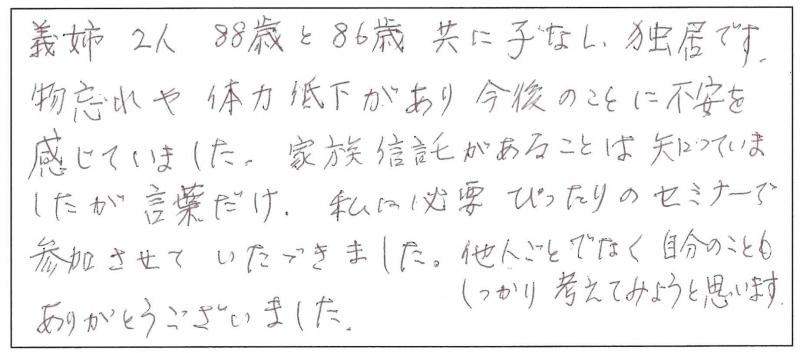 義姉 2人 88歳と86歳 共に子なし、独居です。
物忘れや体力低下があり今後のことに不安を
感じていました。家族信託があることは知っていま
したが言葉だけ。私に必要 ぴったりのセミナーで
参加させていただきました。他人ごとでなく自分のことも
しっかり考えてみようと思います
ありがとうございました。